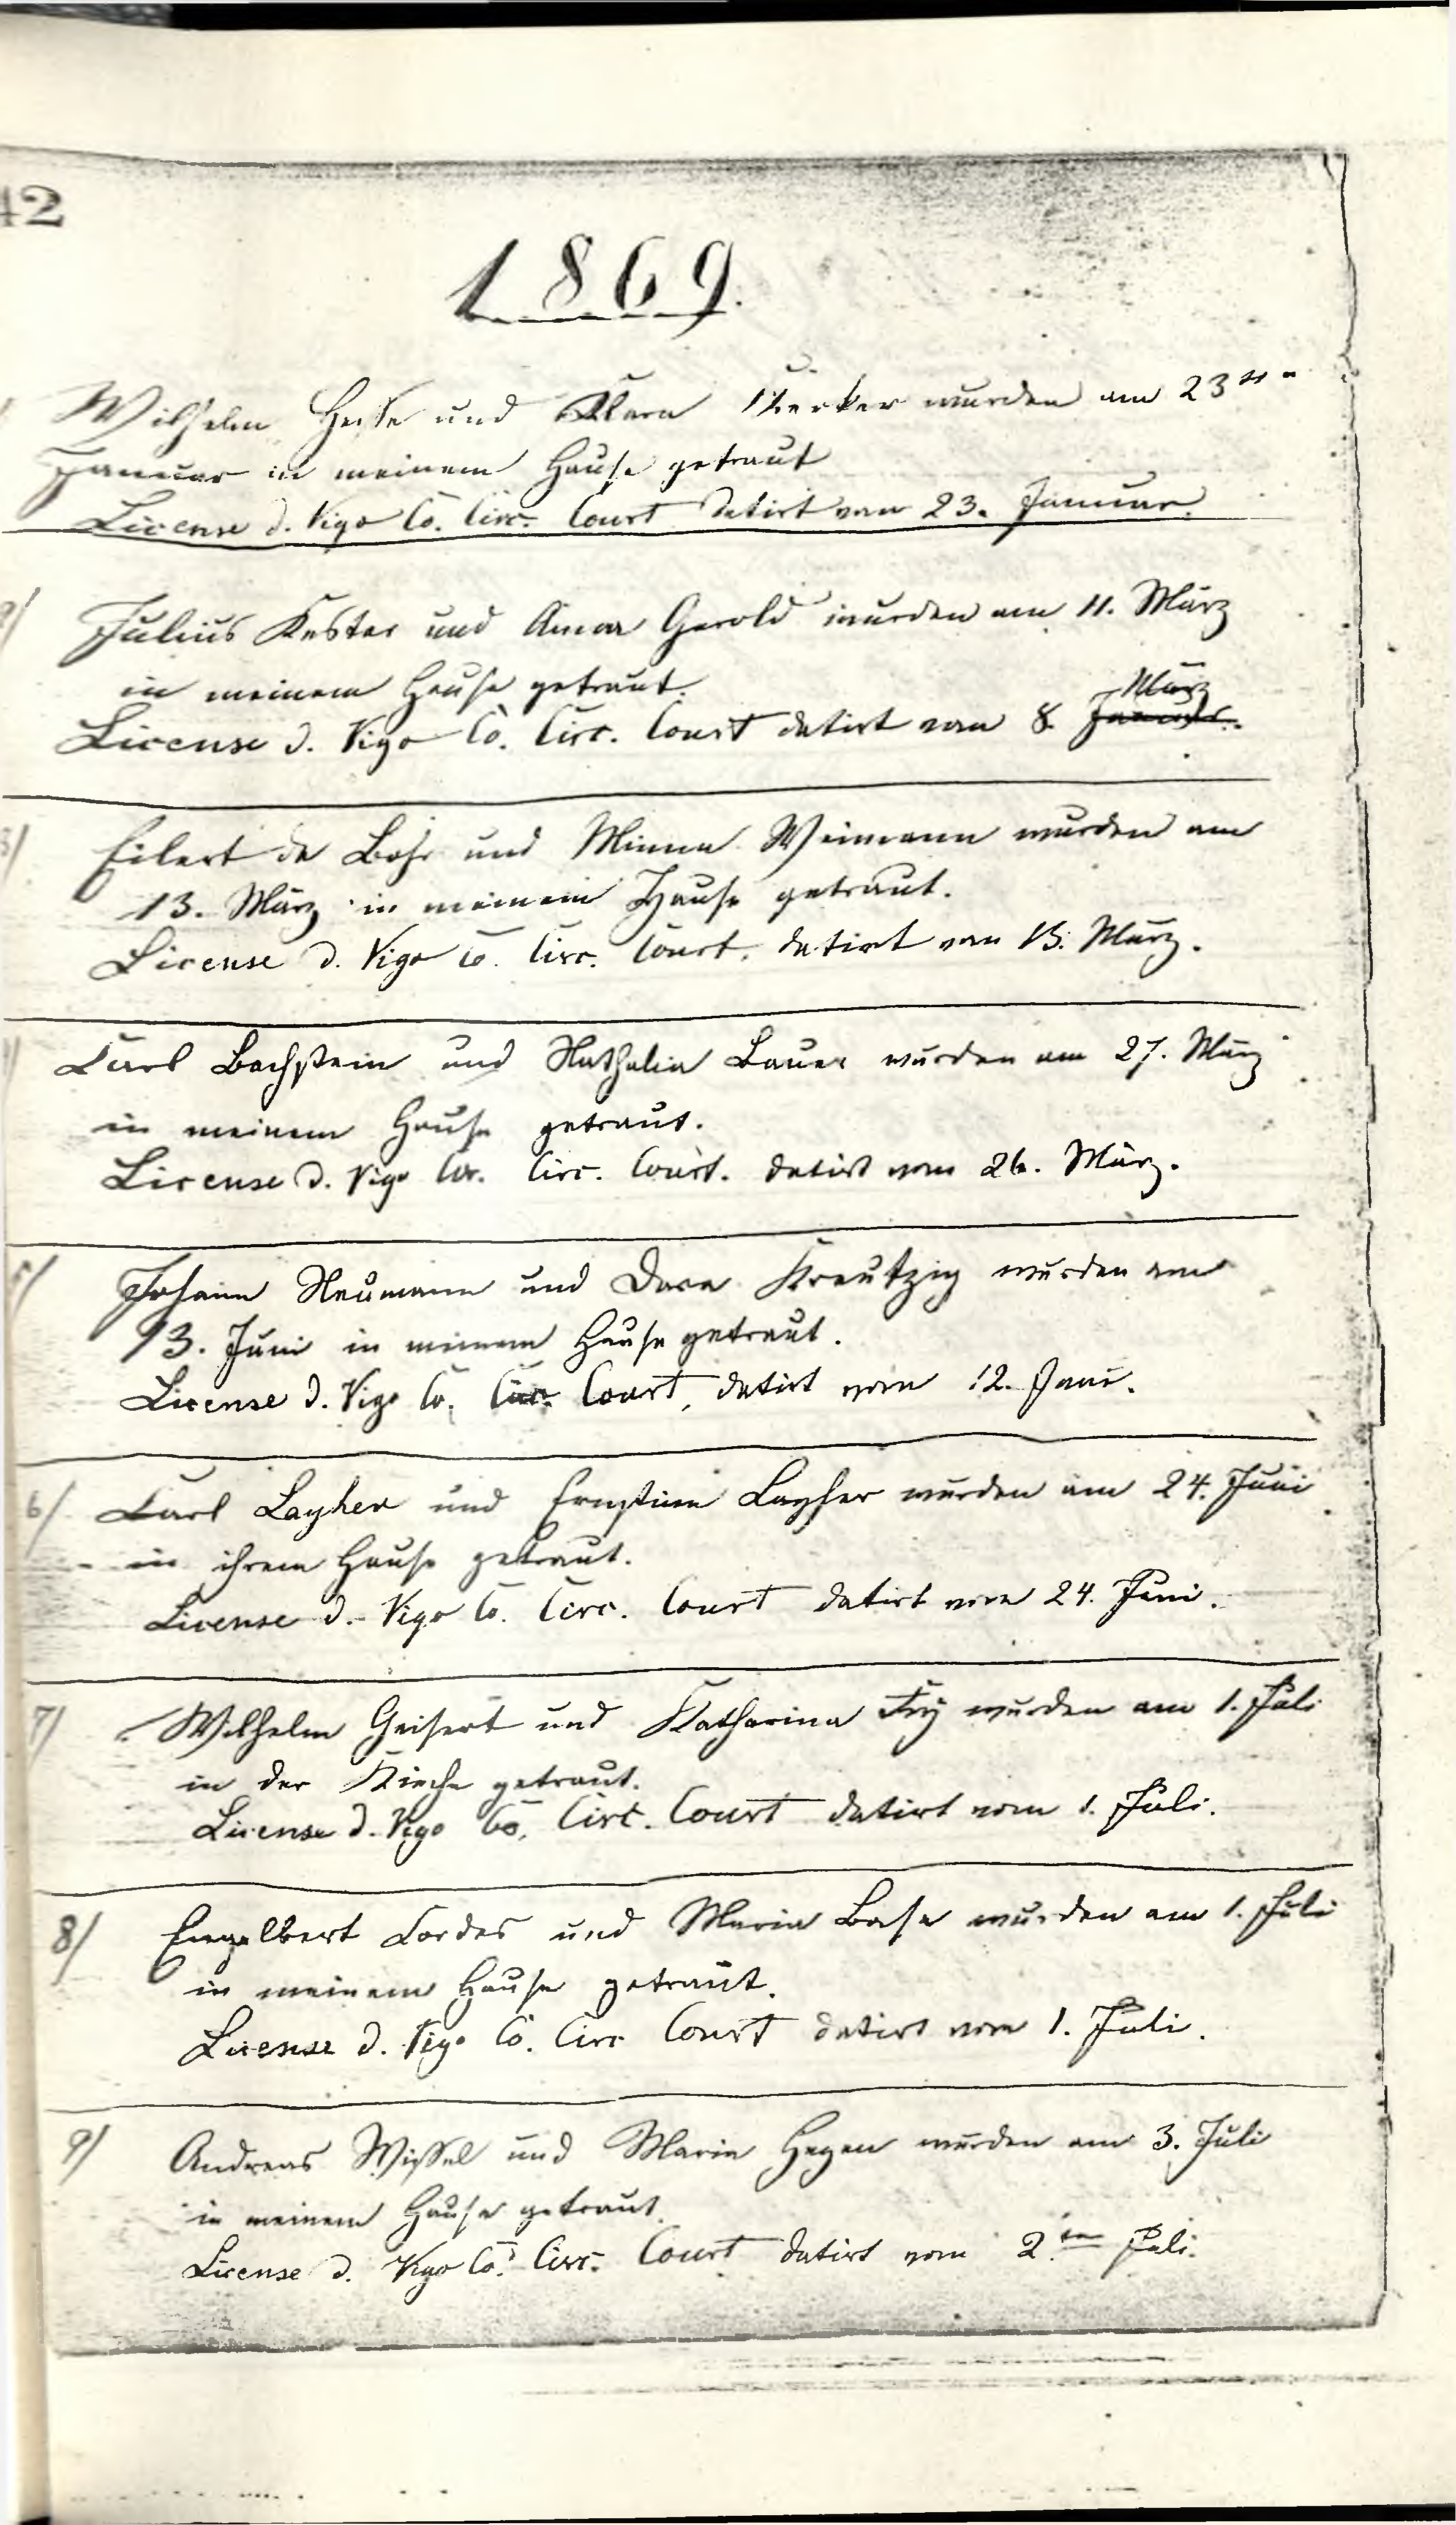 42
1869.
Wilhelm Heise und Klara Kerker wurden am 23ten
Januar in meinem Hause getraut
License d. Vigo Co. Circ. Court datirt vom 23. Januar.
2/ Julius Kester und Anna Gerold wurden am 11. März
in meinem Hause getraut.
März
License d. Vigo Co. Circ. Court datirt vom 8. Januar.
3/ Eilert de Bohr und Minna Weimann wurden am
13. März in meinem Hause getraut.
License d. Vigo Co. Circ. Court. datirt vom 13. März.
Carl Bachstein und Nathalia Bauer wurden am 27. März
in meinem Hause getraut.
License d. Vigo Co. Circ. Court. datirt vom 26. März.
5/ Johann Neumann und Dora Kreutzig wurden am
13. Juni in meinem Hause getraut.
License d. Vigo Co. Circ. Court, datirt vom 12. Juni.
6/ Carl Layher und Ernstine Layher wurden am 24. Juni
in ihrem Hause getraut.
License d. Vigo Co. Circ. Court datirt vom 24. Juni.
7/ Wilhelm Geisert und Katharina Fry wurden am 1. Juli
in der Kirche getraut.
License d. Vigo Co. Circ. Court datirt vom 1. Juli.
8/ Engelbert Cordes und Maria Bose wurden am 1. Juli
in meinem Hause getraut.
License d. Vigo Co. Circ Court datirt vom 1. Juli.
9/ Andreas Wissel und Maria Hegen wurden am 3. Juli
in meinem Hause getraut.
License d. Vigo Co. Circ. Court datirt vom 2.ten Juli.